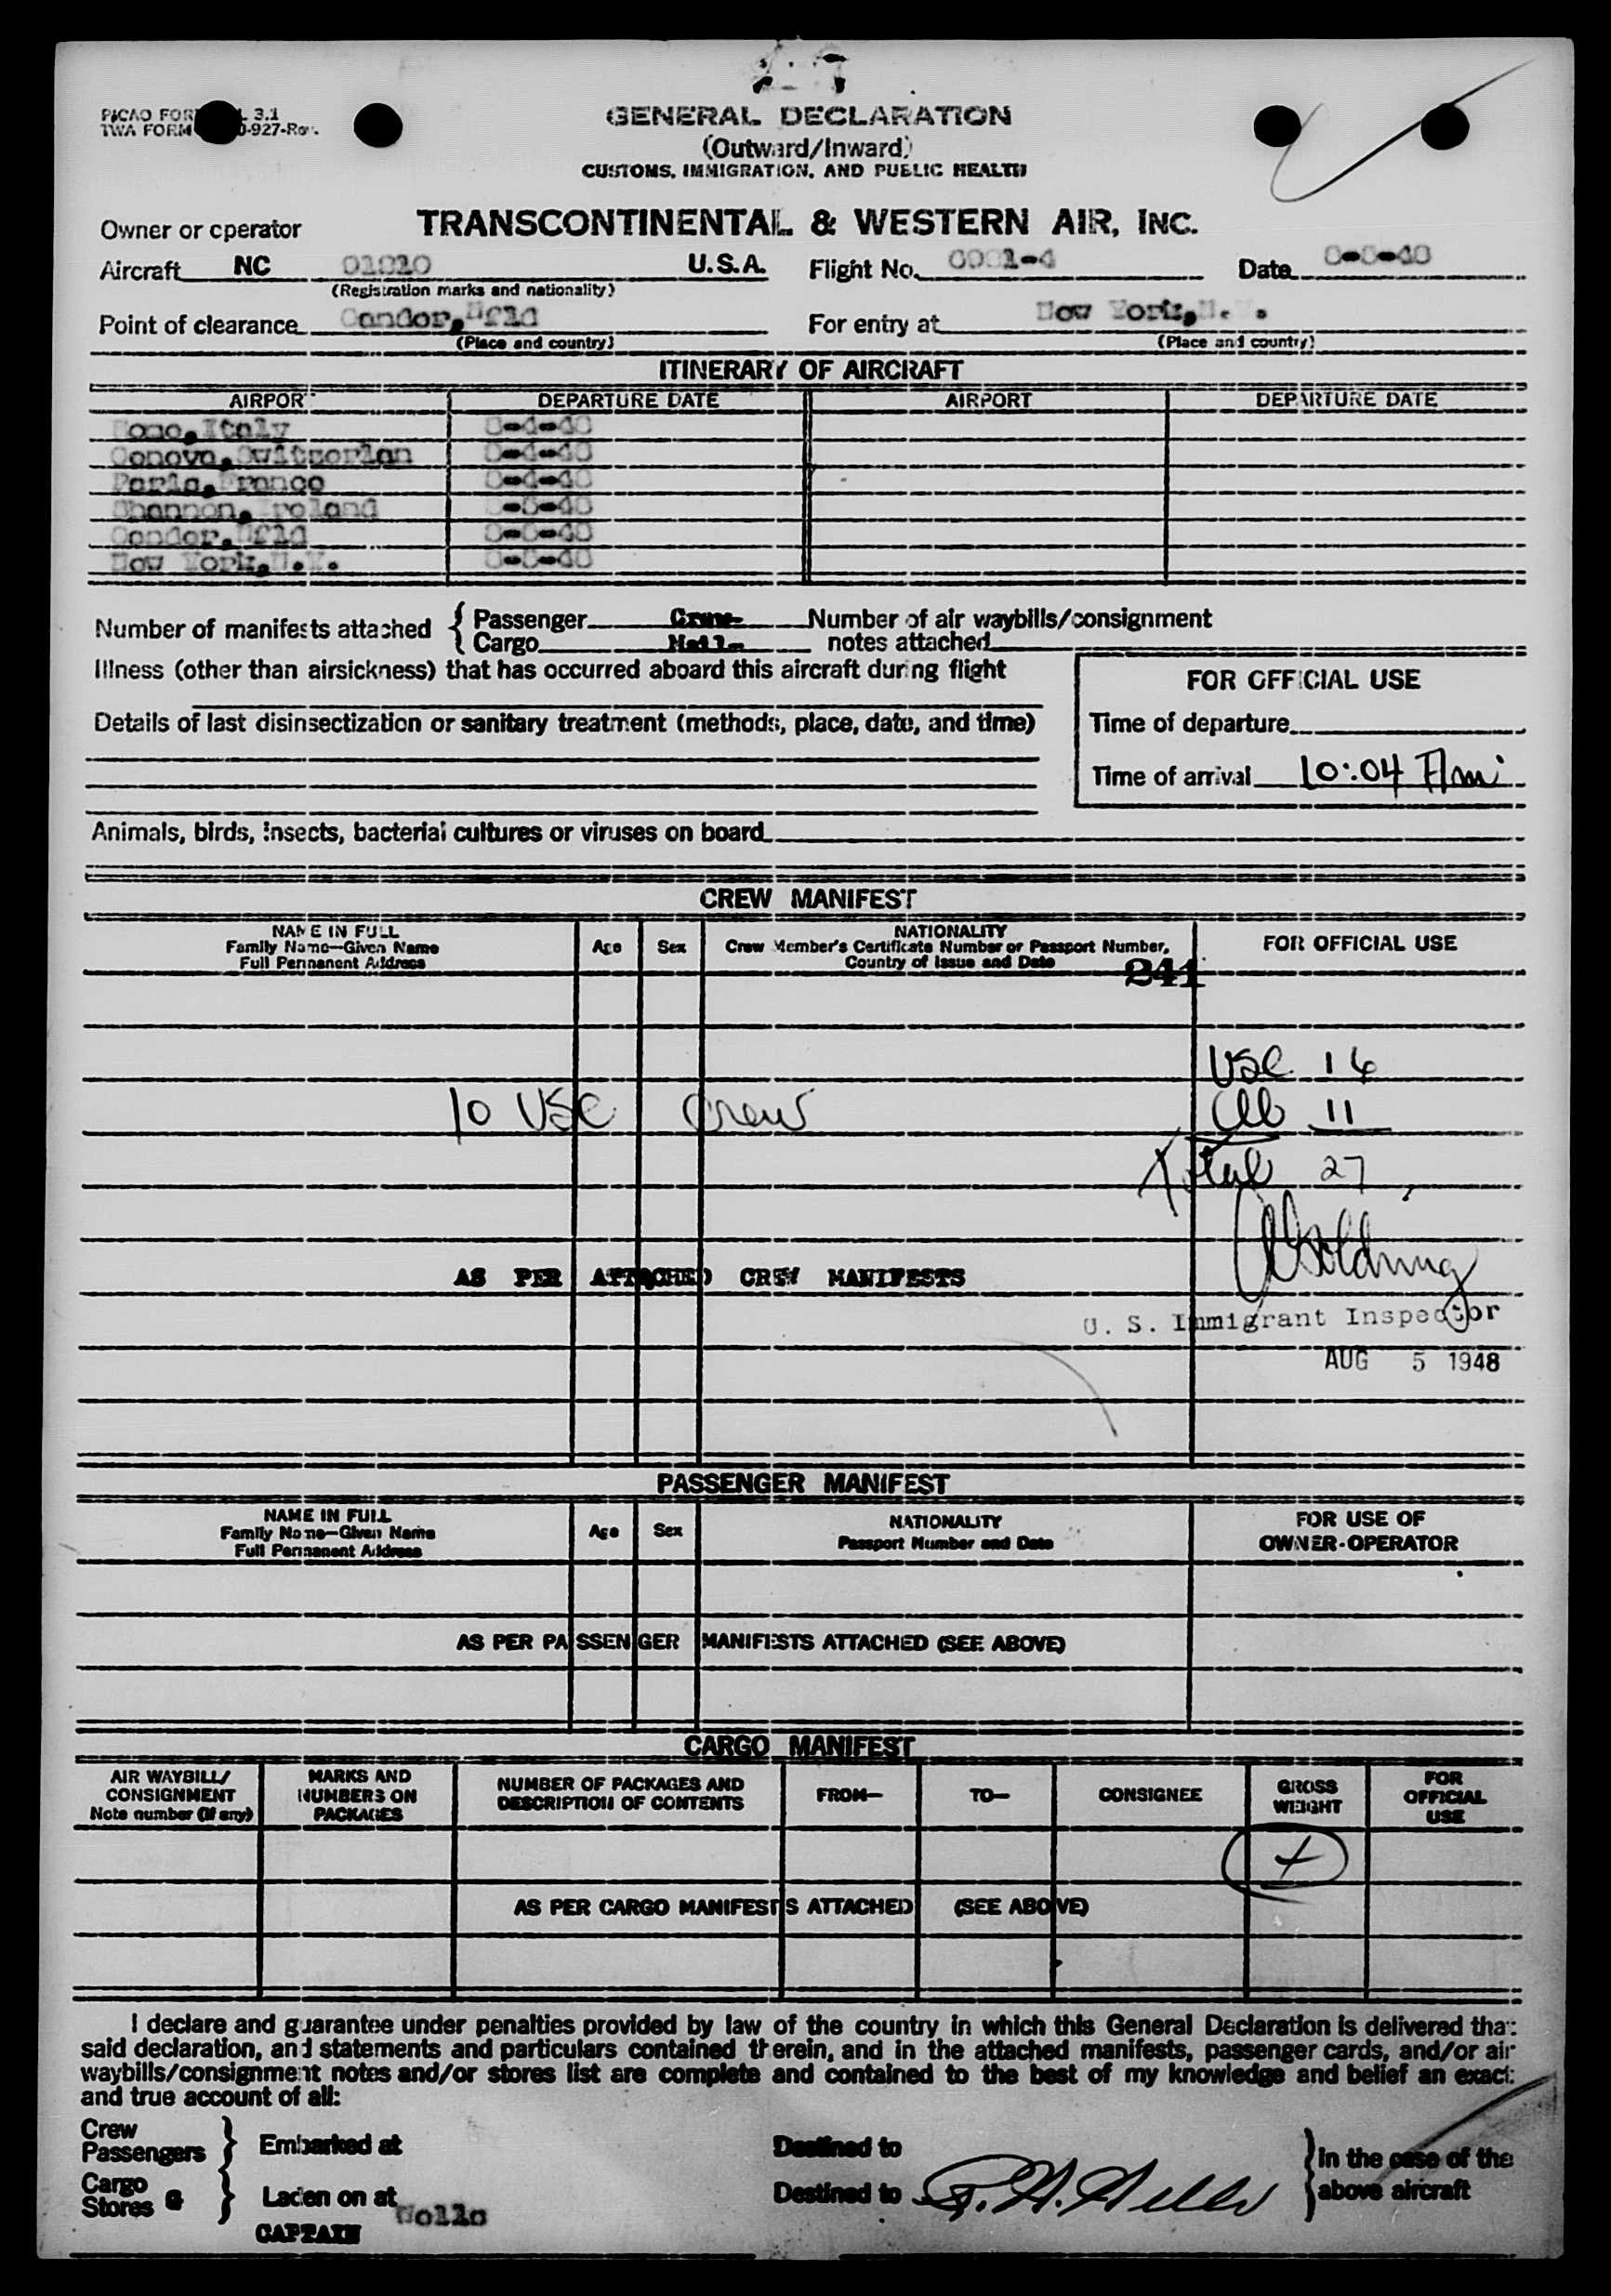 GENERAL DECLARATION
(Outward/Inward)
CUSTOMS, IMMIGRATION, AND PUBLIC HEALTH
PICAO FOR 3.1
TWA FORM 0-927-Rev.
Owner or operator TRANSCONTINENTAL & WESTERN AIR, INC.
Aircraft NC 91210 U.S.A. Flight No. Date
(Registration marks and nationality)
Point of clearance Gander, Nfld For entry at New York, N.Y.
(Place and country) (Place and country)
ITINERARY OF AIRCRAFT
AIRPORT DEPARTURE DATE AIRPORT DEPARTURE DATE
Rome, Italy 8-4-48
Geneva, Switzerlan 8-4-48
Paris, France 8-4-48
Shannon, Ireland -5-48
Gander, Nfld 8-5-48
New York, N.Y. 8-5-48
Number of manifests attached { Passenger Crew Number of air waybills/consignment
Cargo Mail notes attached
Illness (other than airsickness) that has occurred aboard this aircraft during flight
FOR OFFICIAL USE
Details of last disinsectization or sanitary treatment (methods, place, date, and time)
Time of departure
Time of arrival 10:04 Am
Animals, birds, insects, bacterial cultures or viruses on board
CREW MANIFEST
NAME IN FULL
Family Name—Given Name
Full Permanent Address
Age Sex
NATIONALITY
Crew Member's Certificate Number or Passport Number,
Country of Issue and Date
FOR OFFICIAL USE
241
USC 16
10 USC Crew
Al 11
Total 27
U. S. Immigrant Inspector
AS PER ATTACHED CREW MANIFESTS
AUG 5 1948
PASSENGER MANIFEST
NAME IN FULL
Family Name—Given Name
Full Permanent Address
Age Sex
NATIONALITY
Passport Number and Date
FOR USE OF
OWNER-OPERATOR
AS PER PASSENGER MANIFESTS ATTACHED (SEE ABOVE)
CARGO MANIFEST
AIR WAYBILL/
CONSIGNMENT
Note number (if any)
MARKS AND
NUMBERS ON
PACKAGES
NUMBER OF PACKAGES AND
DESCRIPTION OF CONTENTS
FROM— TO— CONSIGNEE
GROSS
WEIGHT
FOR
OFFICIAL
USE
AS PER CARGO MANIFESTS ATTACHED (SEE ABOVE)
I declare and guarantee under penalties provided by law of the country in which this General Declaration is delivered that
said declaration, and statements and particulars contained therein, and in the attached manifests, passenger cards, and/or air
waybills/consignment notes and/or stores list are complete and contained to the best of my knowledge and belief an exact
and true account of all:
Crew
Passengers } Embarked at Destined to
Cargo
Stores } Laden on at Destined to
} in the case of the
above aircraft
CAPTAIN